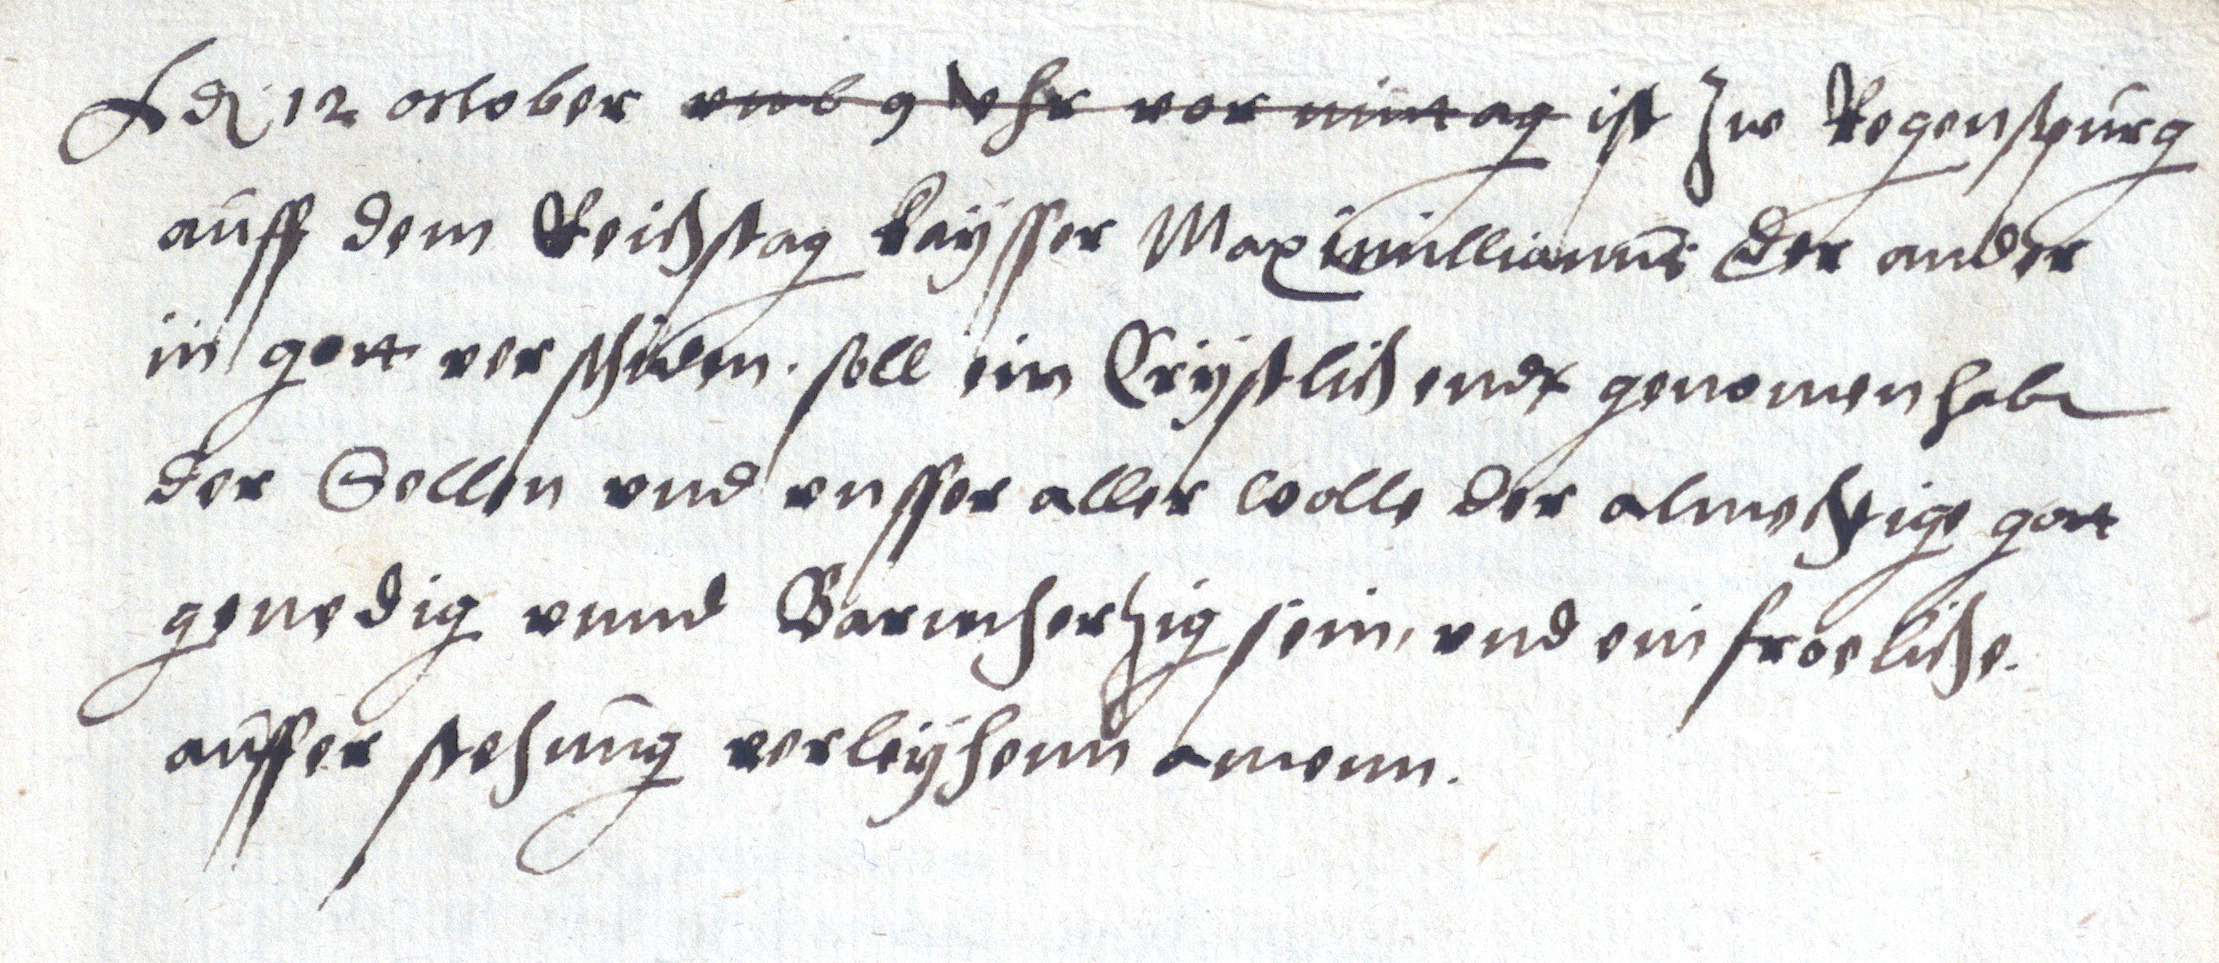 den 12 october vmb 9 vhr vor mittag ist zw Regenspurg
auff dem Reichstag kaÿsser Maximillianus der ander
in gott verschiden. soll ein Crÿstlich endt genomen habe
der Sellen vnd vnsser aller wolle der almechtige gott
genedig vnnd Barmherzig sein, vnd ein froeliche.
aufferstehung verleÿhenn amenn.